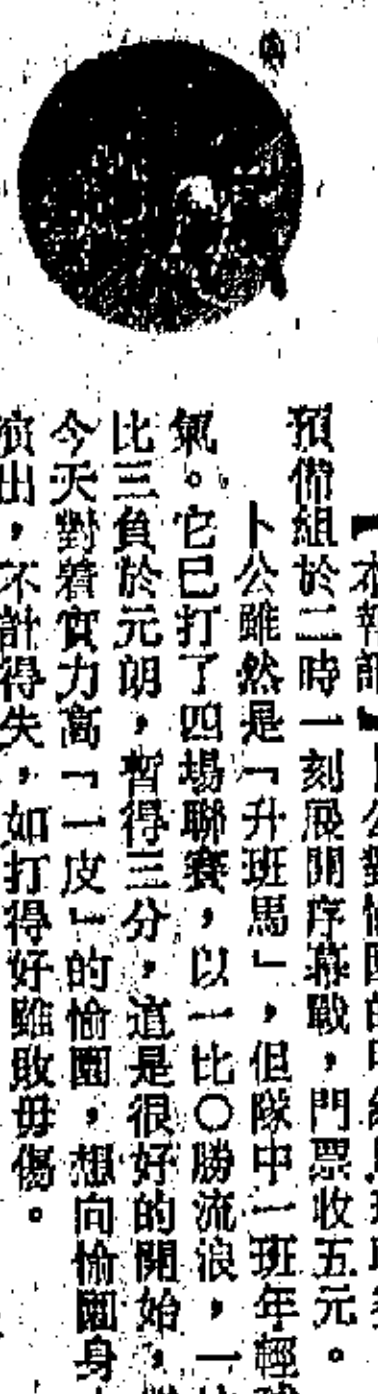 【本報訊】卜公對愉園的甲組
預備組於二時一刻展開序幕戰，門票收五元。
卜公雖然是「升班馬」，但隊中一班年輕
氣。它已打了四場聯賽，以一比〇勝流浪，一
比三負於元朗，暫得三分，這是很好的開始，
今天對着實力高「一皮」的愉園，想向愉園身
演出，不計得失，如打得好雖敗毋傷。